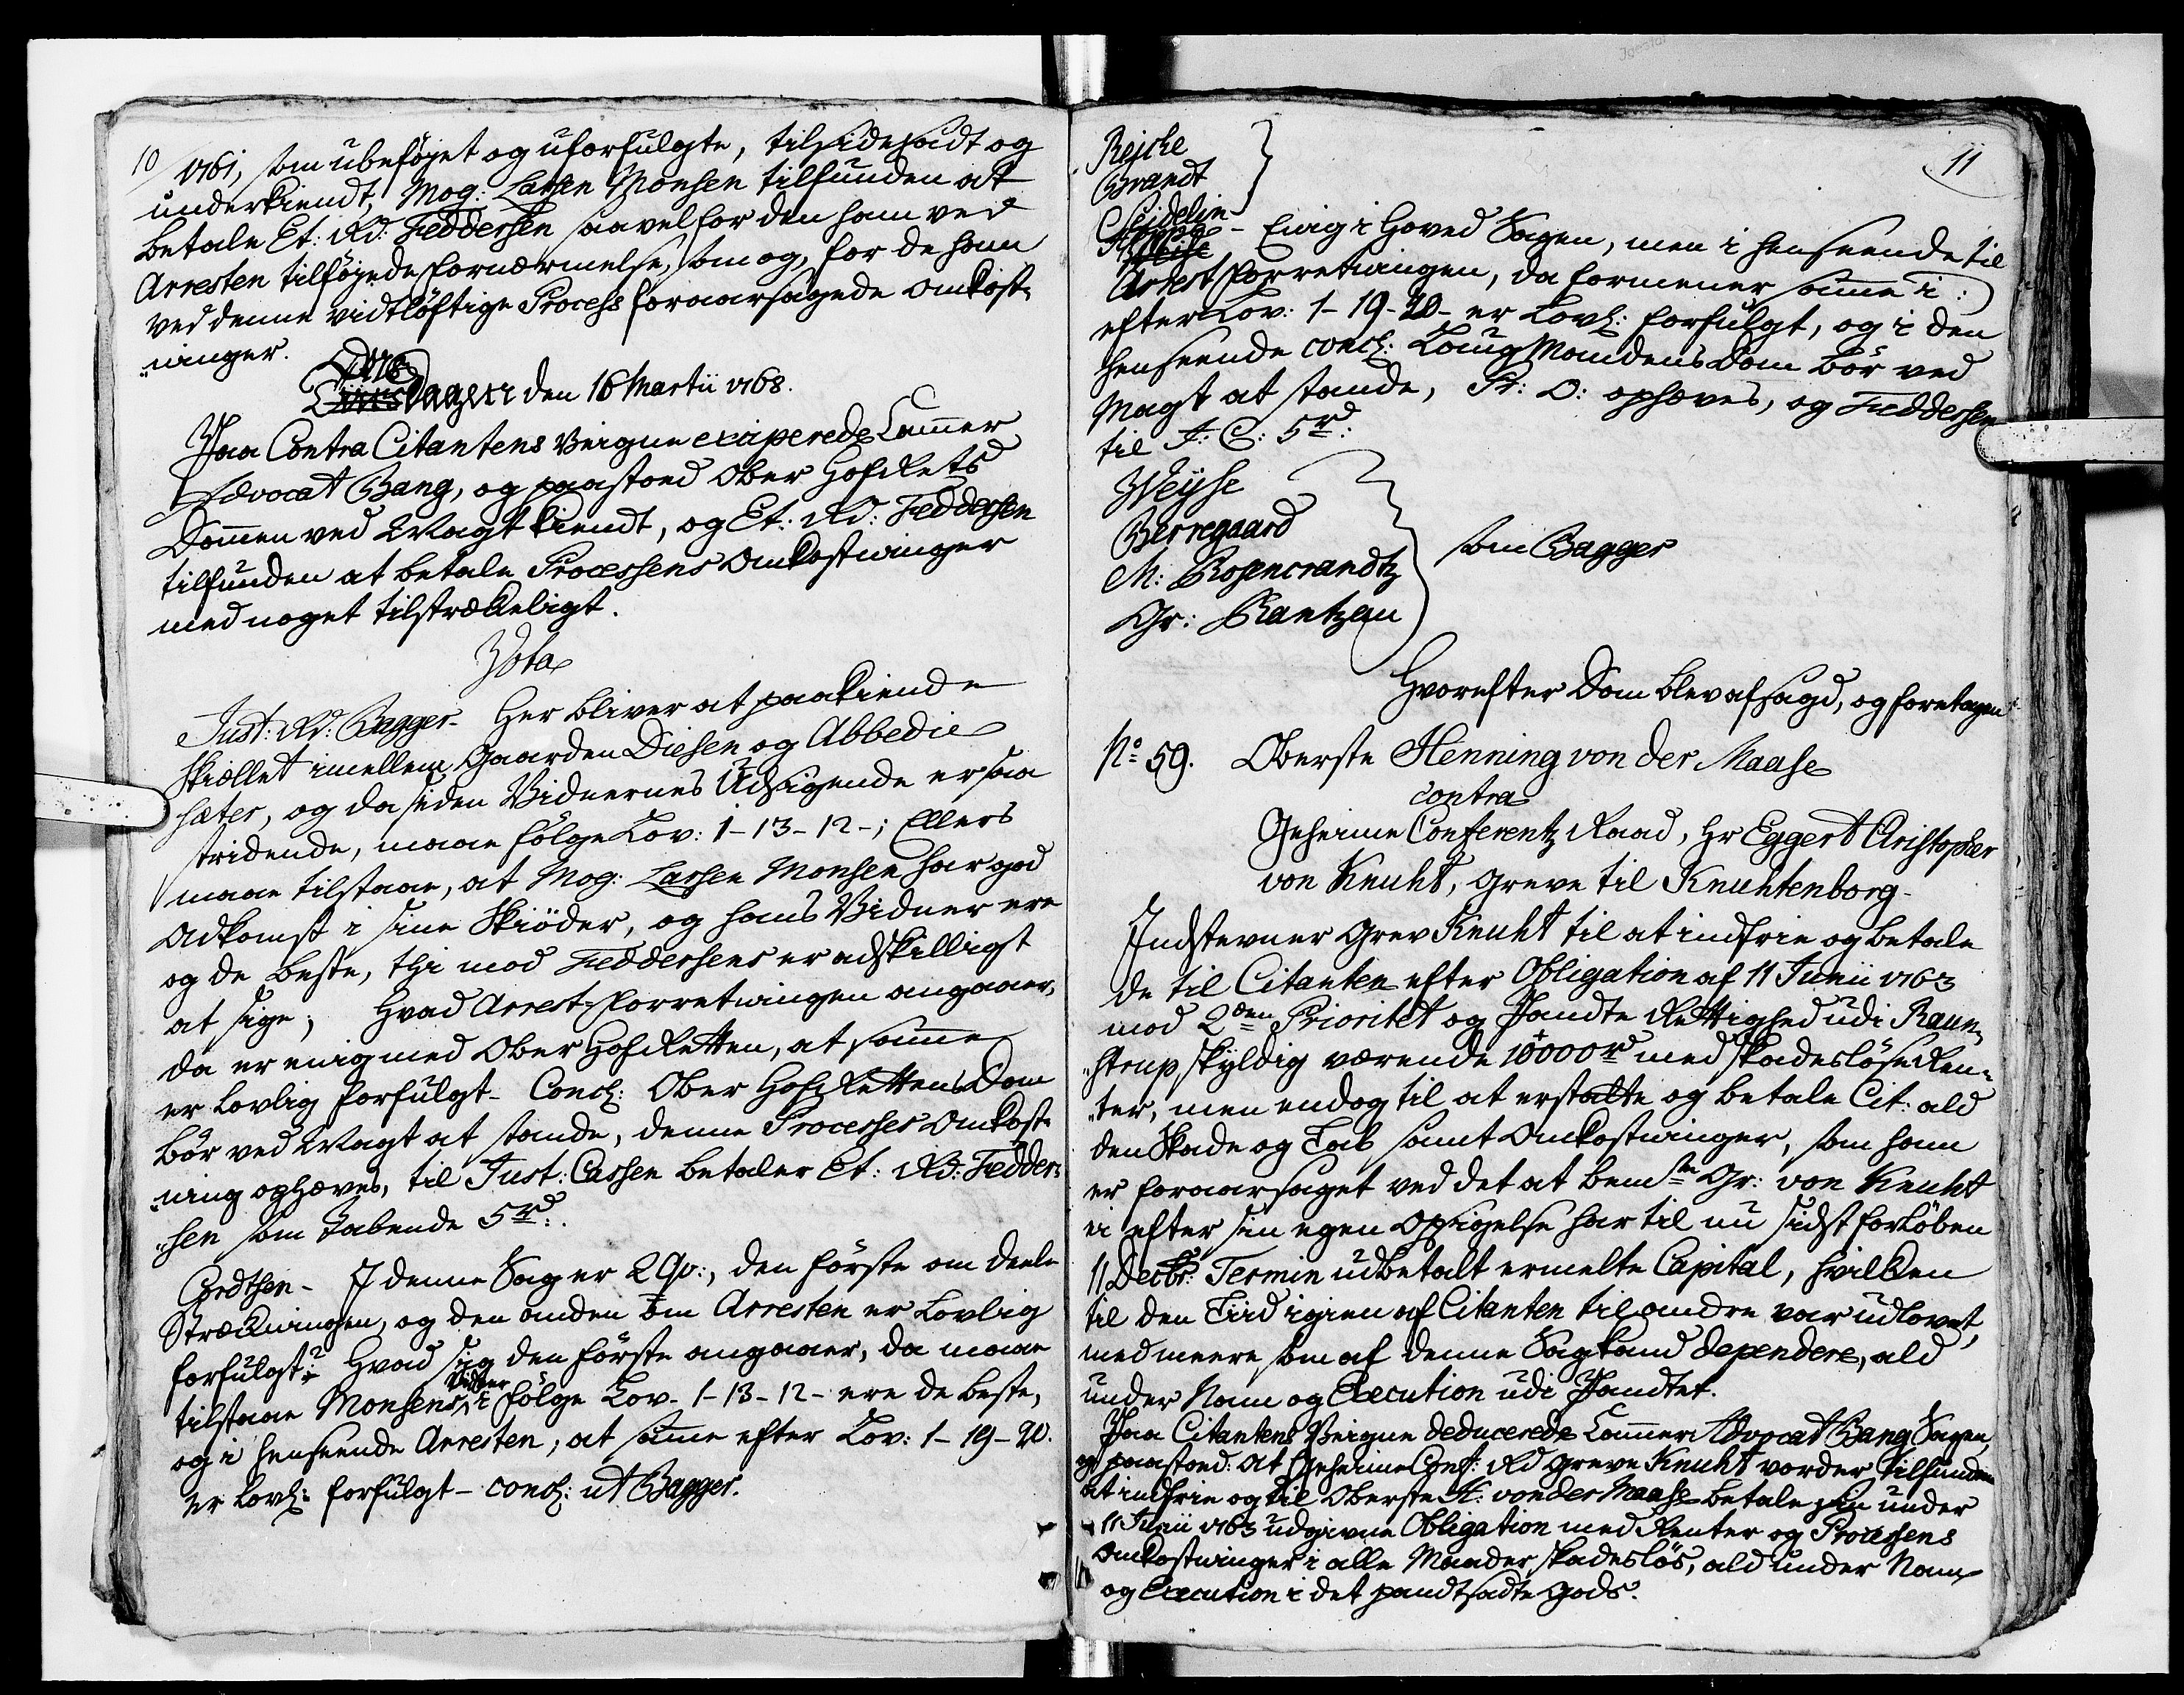 10
1761, som ubeføjet og uforfulgte, tilsidesadt og
underkiendt, Mog: Larsen Monsen tilfunden at
betale Et: Rd: Feddersen saavel for den ham ved
Arresten tilføjede fornærmelse, som og, for de ham
ved denne vidtløftige Process foraarsagede omkost-
ninger.
Ons
dagen den 16 Martii 1768.
Paa Contra Citantens Veigne exciperede Cammer
Advocat Bang, og paastoed Ober HofRets
Dommen ved Magt kiendt, og Et: Rd: Feddersen
tilfunden at betale Processens Omkostninger
med noget tilstrækkeligt.
Vota
Just: Rd: Bagger- Her bliver at paakiende
skiellet imellem Gaarden Diesen og Abbedie
sæter, og da siden Vidnernes Udsigende er saa
stridende, maae følge Lov: 1-13-12-; Ellers
maae tilstaae, at Mog: Larsen Monsen har god
Adkomst i sine Skiøder, og hans Vidner ere
og de beste, thi mod Feddersens er adskilligt
at sige; Hvad Arrest-forretningen angaaer,
da er enig med Ober HofRetten, at samme
er lovlig forfulgt- Concl: Ober HofRettens Dom
bør ved Magt at stande, denne Processes Omkost-
ning ophæves, til Just: Cassen betaler Et: Rd: Fedder-
sen som tabende 5 rd:.
Cordtsen- I denne Sag er 2 Qv:, den første om deele
Strækningen, og den anden om Arresten er lovlig
forfulgt? Hvad sig den første angaaer, da maae
tilstaae Monsens Vidner i følge Lov- 1-13-12- ere de beste,
og i henseende Arresten, at samme efter Lov: 1-19-20.
er lovl: forfulgt- concl: ut Bagger.
11
Rejche
Brandt
Seidelin
- Enig i Hoved Sagen, men i henseende til
Arrest forretningen, da formener samme i:
efter Lov: 1-19-20- er lovl: forfulgt, og i den
henseende concl: Laug Mandens Dom bør ved
Magt at stande, Pr: O: ophæves, og Feddersen
til J: C: 5 rd:
Weyse
Berregaard
M: Rosencrandtz
Gr: Rantzau
som Bagger
Hvorefter Dom blev afsagd, og foretagen
No: 59. Oberste Henning von der Maase
contra
Geheime Conferentz Raad, Hr Eggert Christopher
von Knuht, Greve til Knuhtenborg-
Indstevner Grev Knuht til at indfrie og betale
de til Citanten efter Obligation af 11 Junii 1763
mod 2den Prioritet og Pandte Rettighed udi Raun-
strup, skyldig værende 10000 rd med skadesløse Ren-
ter, men endog til at erstatte og betale Cit: ald
den Skade og Tab samt Omkostninger, som ham
er foraarsaget ved det at bemte Gr: von Knuht
ei efter sin egen opsigelse har til nu sidst forløben
11 Decbr: Termin udbetalt ermelte Capital, hvilken
til den Tiid igien af Citanten til andre var udlovet,
med meere, som af denne Sag kand dependere, ald
under Nam og Execution udi Pandtet.
Paa Citantens Veigne deducerede Cammer Advocat Bang Sagen,
og paastoed: At Geheime Conf: Rd Greve Knuht vorder tilfunden
at indfrie og til Oberste H: von der Maase betale sin under
11 Junii 1763 udgivne Obligation med Renter og Processens
Omkostninger i alle Maader skadesløs, ald under Nam
og Execution i det pandtsadte Gods.